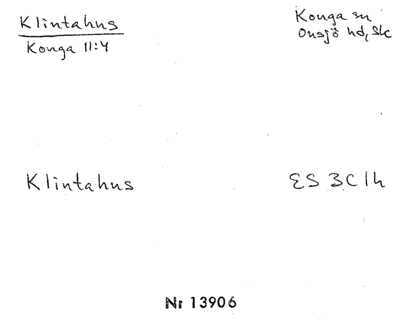 Klintahus
Konga 11:4
Konga sn
Onsjö hd, Sk
Klintahus
ES 3C 1h
Nr 13906